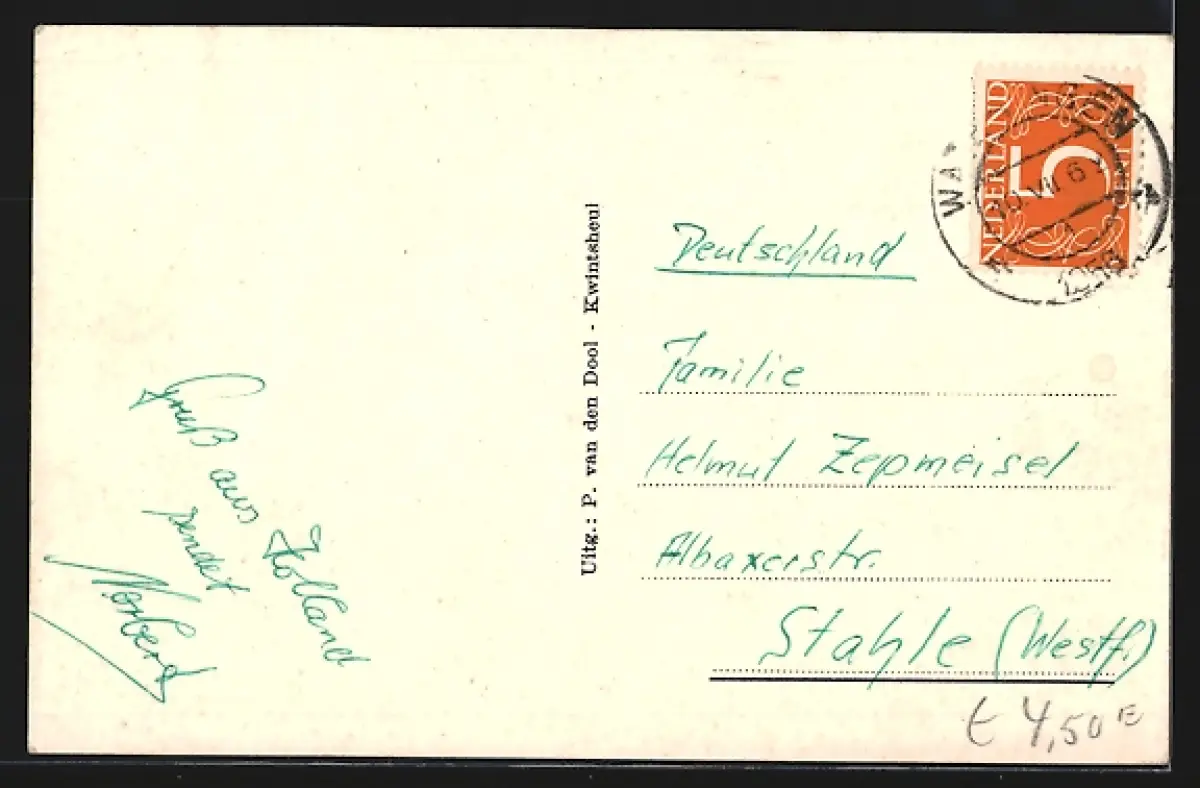 Gruß aus Holland
sendet
Norbert
Uitg.: P. van den Dool - Kwintsheul
NEDERLAND
5
CENT
10. VII. 6
Deutschland
Familie
Helmut Zepmeisel
Albaxerstr.
Stahle (Westf.)
€ 4,50